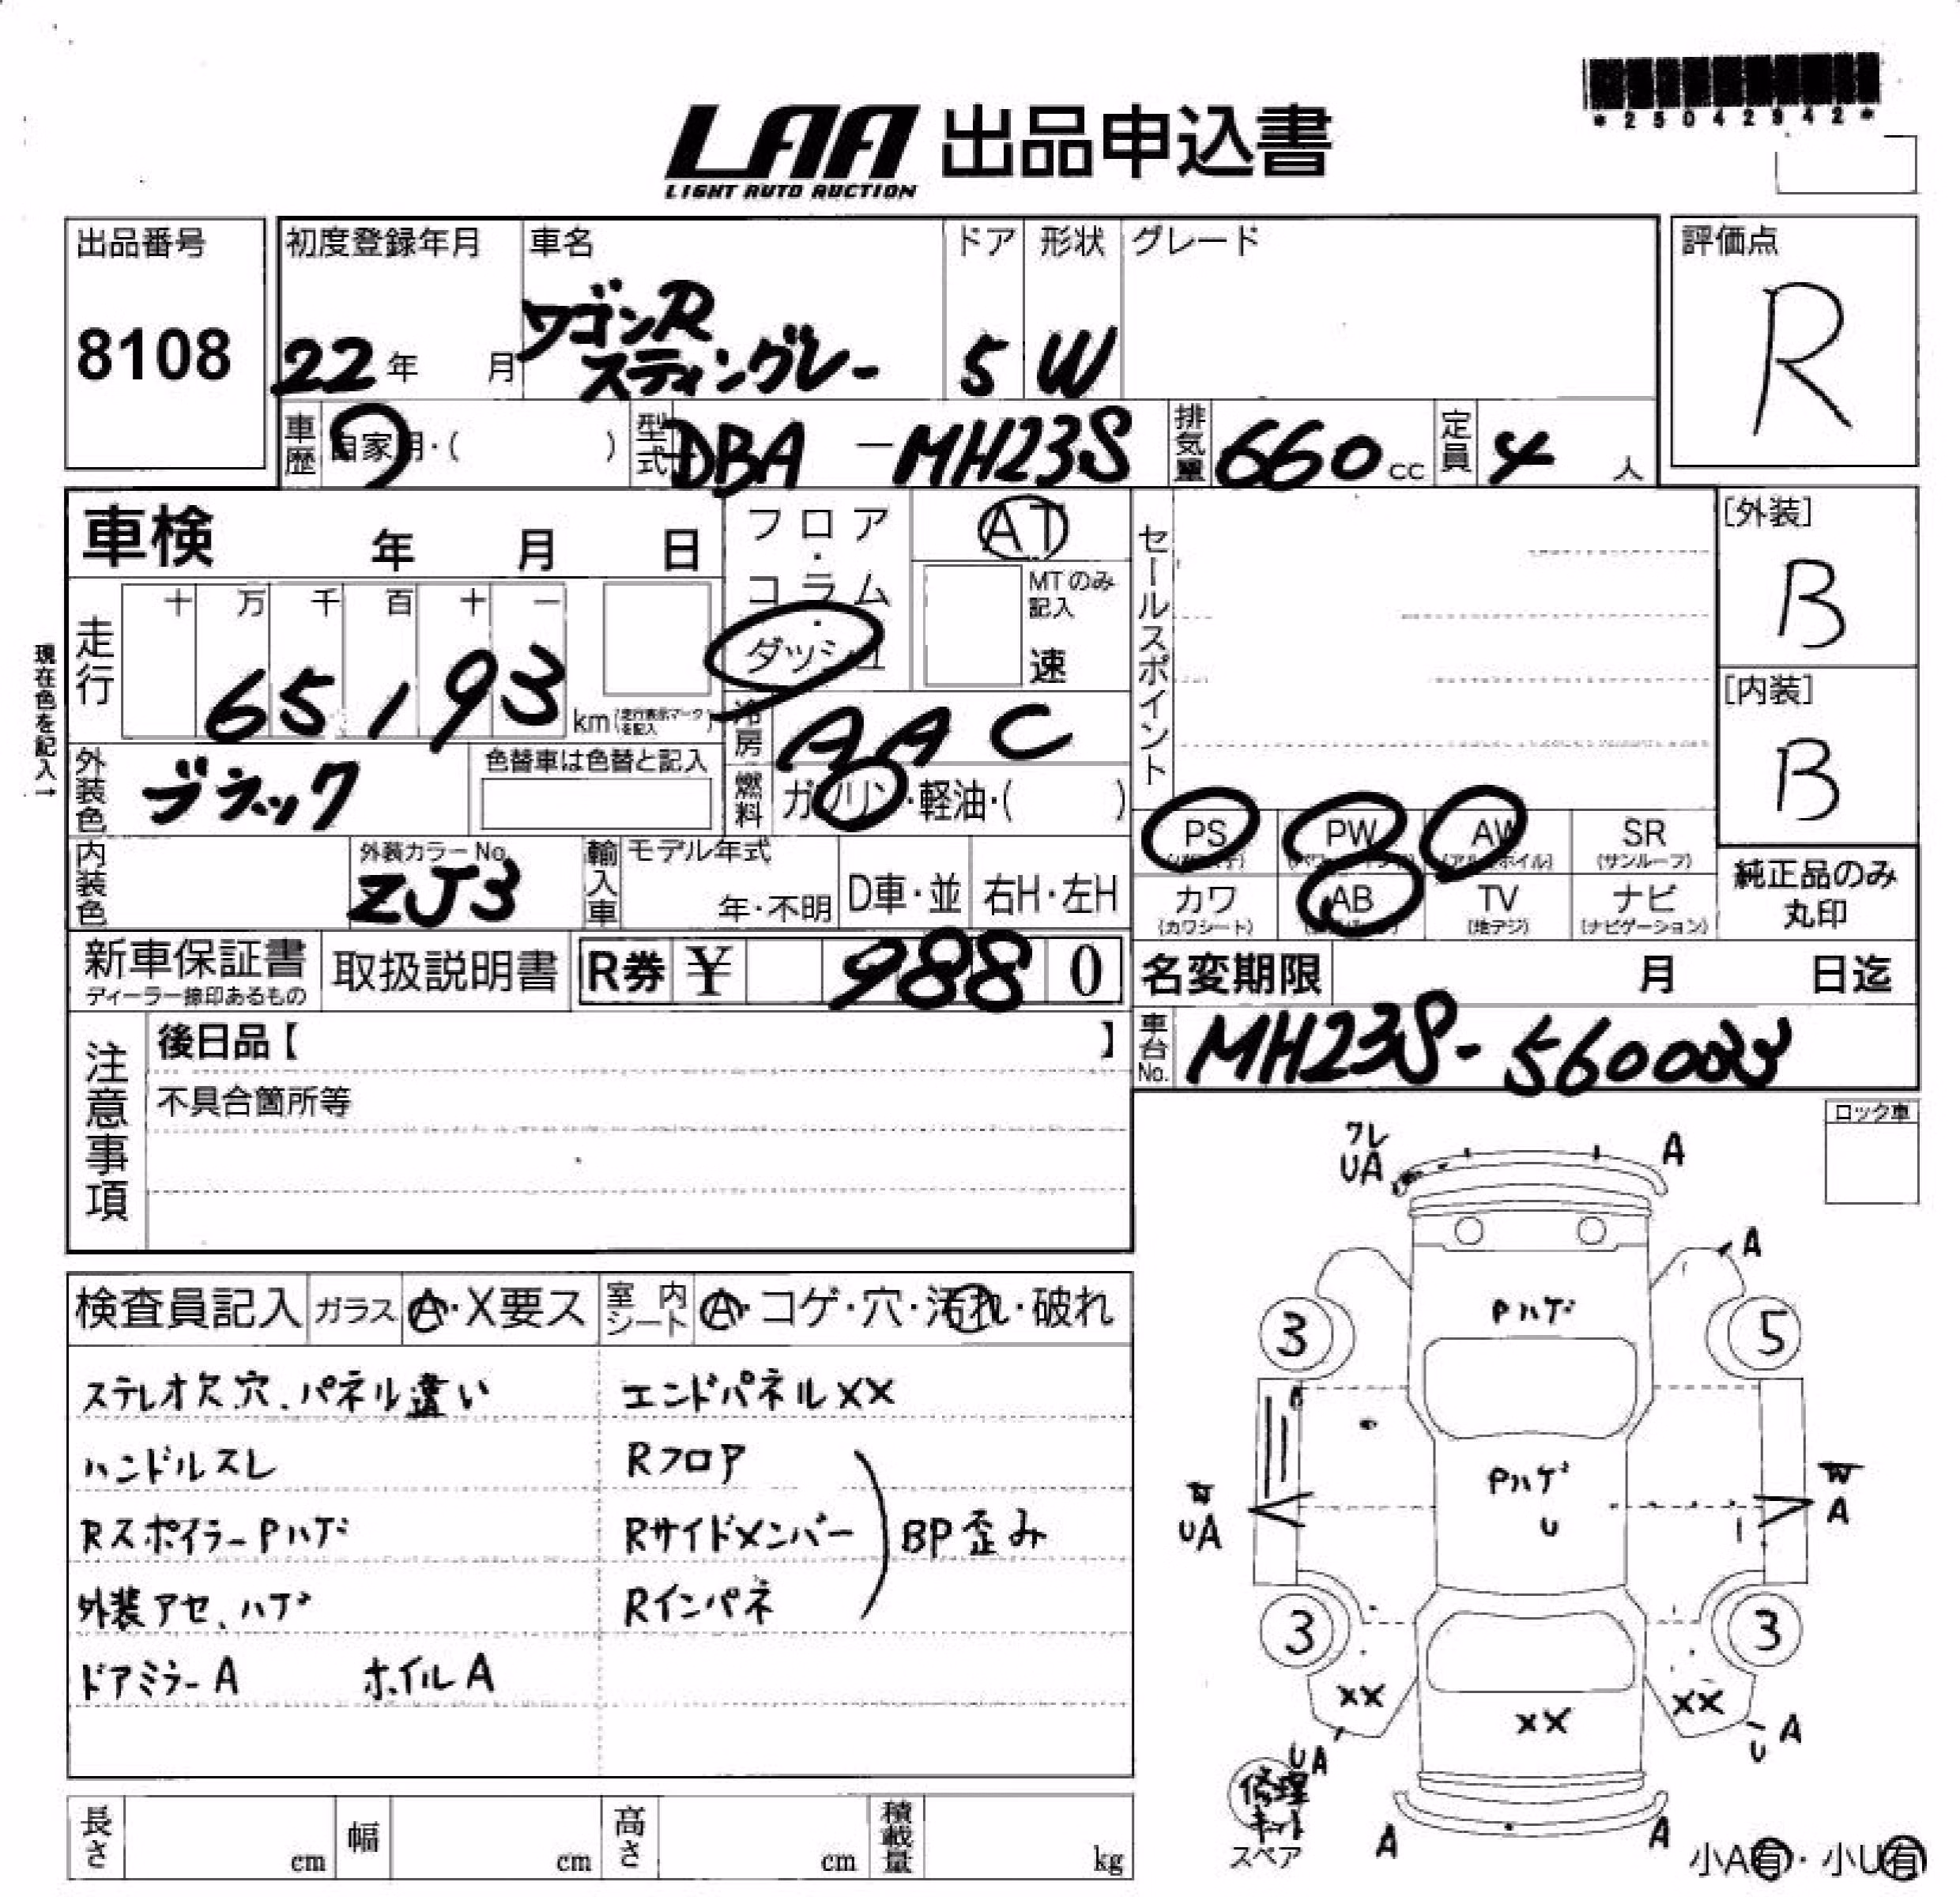 *25042942*
LAA 出品申込書
LIGHT AUTO AUCTION
出品番号
8108
初度登録年月
22年 月
車名
ワゴンR
スティングレー
ドア
5
形状
W
グレード
評価点
R
車歴
自家用・( )
型式
DBA-MH23S
排気量
660cc
定員
4人
車検 年 月 日
フロア・コラム・ダッシュ
AT
MTのみ記入
速
セールスポイント
[外装]
B
[内装]
B
現在色を記入→
走行
十 万 千 百 十 一
65,193 km
(走行表示マークを記入)
冷房
AAC
外装色
ブラック
色替車は色替と記入
燃料
ガソリン・軽油・( )
PS PW AW SR
(アルミホイル) (サンルーフ)
カワ AB TV ナビ
(カワシート) (地デジ) (ナビゲーション)
純正品のみ
丸印
内装色
外装カラーNo.
ZJ3
輸入車
モデル年式
年・不明
D車・並
右H・左H
新車保証書
ディーラー捺印あるもの
取扱説明書
R券 ¥ 9880
名変期限 月 日迄
車台No.
MH23S-560033
注意事項
後日品【 】
不具合箇所等
ロック車
ワレ
UA
A
A
Pハゲ
3 5
Pハゲ
U
W
UA
W
A
3 3
XX XX XX
UA
A
U
A A
修理キット
スペア
小A有・小U有
検査員記入 ガラス A・X要ス 室内シート A・コゲ・穴・汚れ・破れ
ステレオ欠穴、パネル違い
ハンドルスレ
RスポイラーPハゲ
外装アセ、ハゲ
ドアミラーA ホイルA
エンドパネルXX
Rフロア
Rサイドメンバー
Rインパネ
BP歪み
長さ cm
幅 cm
高さ cm
積載量 kg